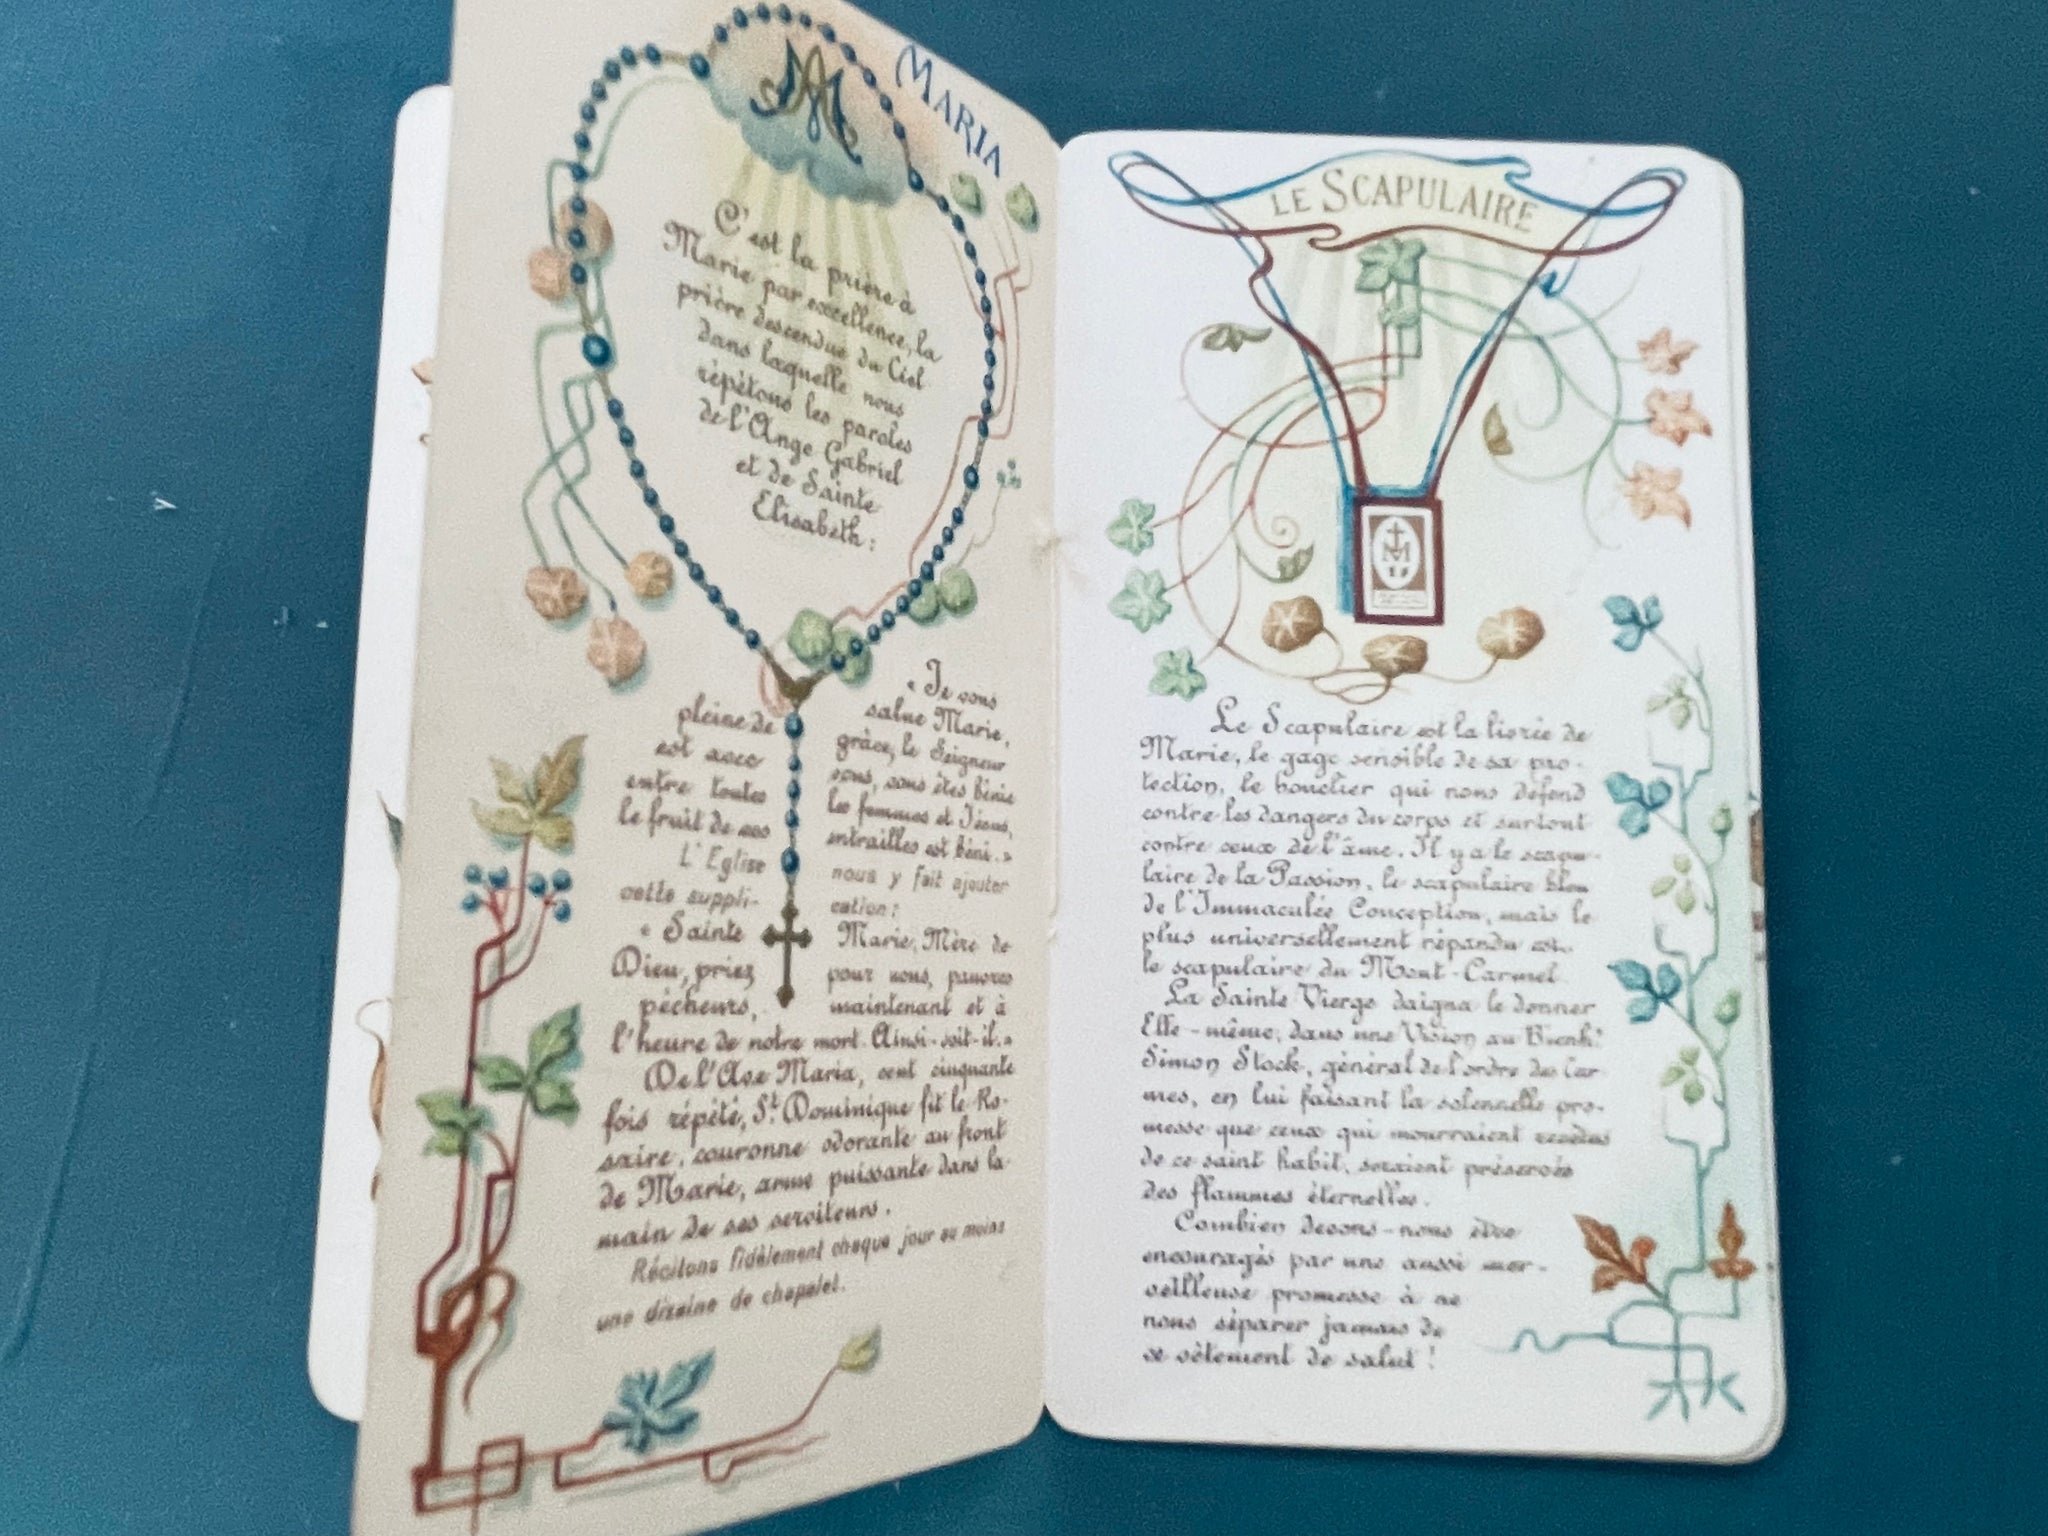 MARIA
C'est la prière à
Marie par excellence, la
prière descendue du Ciel
dans laquelle nous
répétons les paroles
de l'Ange Gabriel
et de Sainte
Elisabeth :
« Je vous
salue Marie,
pleine de grâce, le Seigneur
est avec vous, vous êtes bénie
entre toutes les femmes et Jésus,
le fruit de vos entrailles est béni. »
L'Eglise nous y fait ajouter
cette suppli- cation :
« Sainte Marie, Mère de
Dieu, priez pour nous, pauvres
pécheurs, maintenant et à
l'heure de notre mort. Ainsi-soit-il. »
De l'Ave Maria, cent cinquante
fois répété, St. Dominique fit le Ro-
saire, couronne odorante au front
de Marie, arme puissante dans la
main de ses serviteurs.
Récitons fidèlement chaque jour au moins
une dizaine de chapelet.
LE SCAPULAIRE
M
Le Scapulaire est la livrée de
Marie, le gage sensible de sa pro-
tection, le bouclier qui nous défend
contre les dangers du corps et surtout
contre ceux de l'âme. Il y a le scapu-
laire de la Passion, le scapulaire bleu
de l'Immaculée Conception, mais le
plus universellement répandu est
le scapulaire du Mont-Carmel.
La Sainte Vierge daigna le donner
Elle-même, dans une Vision au Bienh!
Simon Stock, général de l'ordre des Car-
mes, en lui faisant la solennelle pro-
messe que ceux qui mourraient revêtus
de ce saint habit, seraient préservés
des flammes éternelles.
Combien devons-nous être
encouragés par une aussi mer-
veilleuse promesse à ne
nous séparer jamais de
ce vêtement de salut !